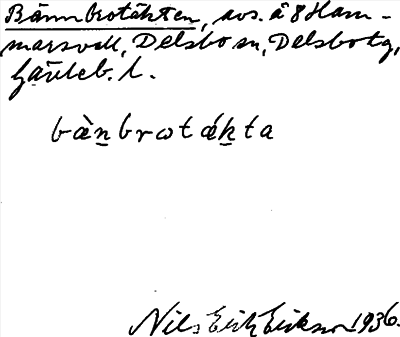 Bännbrotäkten, avs. å 8 Ham-
marsvall, Delsbo sn, Delsbo tg,
Gävleb. l.
bànbrotákta
Nils Erik Erikson 1936.